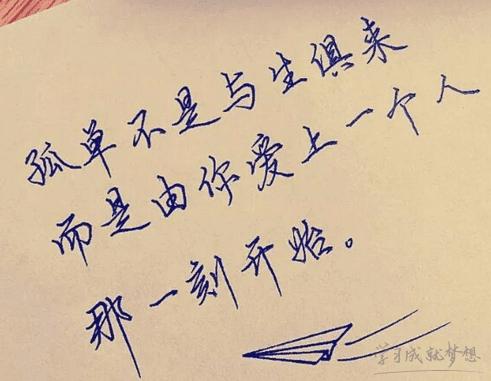 孤单不是与生俱来
而是由你爱上一个人
那一刻开始。
学习成就梦想